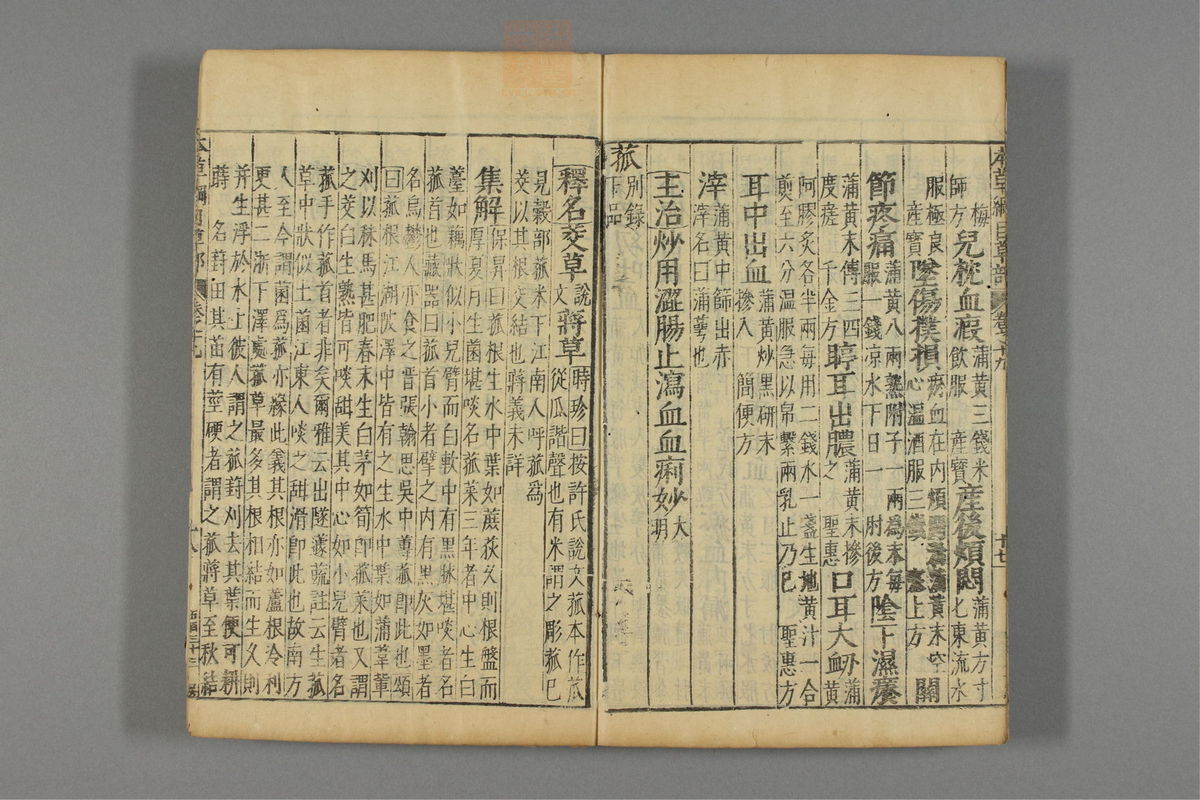 本草綱目草部 卷之十九 十七
梅師方 兒枕血瘕 蒲黃三錢米飲服 產寶 產後煩悶 蒲黃方寸匕東流水
服極良 產寶 墜傷撲損 瘀血在内煩悶者蒲黃末空心溫酒服三錢 塞上方 關
節疼痛 蒲黃八兩熟附子一兩為末每服一錢凉水下日一 肘後方 陰下濕癢
蒲黃末傅三四度瘥 千金方 聤耳出膿 蒲黃末摻之 聖惠 口耳大衂 蒲黃
阿膠炙各半兩每用二錢水一盞生地黃汁一合
煎至六分温服急以帛繫兩乳止乃已 聖惠方
耳中出血 蒲黃炒黑研末摻入 簡便方
滓 蒲黃中篩出赤滓名曰蒲萼也
主治炒用澀腸止瀉血血痢妙 大明
菰 别錄下品
釋名茭草 說文 蔣草 時珍曰按許氏說文菰本作苽從瓜諧聲也有米謂之彫菰已
見穀部菰米下江南人呼菰為
茭以其根交結也蔣義未詳
集解 保昇曰菰根生水中葉如蔗荻久則根盤而厚夏月生菌堪啖名菰菜三年者中心生白
薹如藕狀似小兒臂而白軟中有黑脉堪啖者名
菰首也藏器曰菰首小者擘之内有黑灰如墨者
名烏鬱人亦食之晋張翰思吳中蓴菰即此也頌
曰菰根江湖陂澤中皆有之生水中葉如蒲葦輩
刈以秣馬甚肥春末生白茅如筍即菰菜也又謂
之茭白生熟皆可啖甜美其中心如小兒臂者名
菰手作菰首者非矣爾雅云出隧蘧蔬註云生菰
草中狀似土菌江東人啖之甜滑即此也故南方
人至今謂菌為菰亦緣此義其根亦如蘆根冷利
更甚二浙下澤處菰草最多其根相結而生久則
并生浮於水上彼人謂之菰葑刈去其葉便可耕
蒔名葑田其苗有莖硬者謂之菰蔣草至秋結
本草綱目草部 卷十九 十八